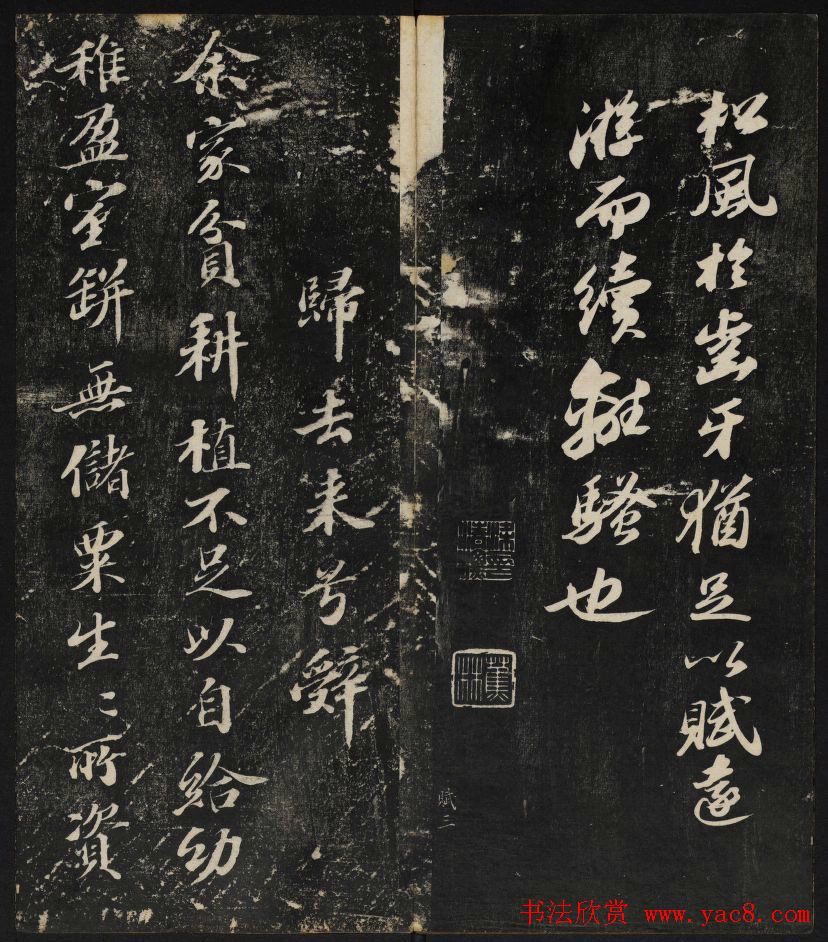 松風於齒牙猶足以賦遠
游而續離騷也
賦三
歸去來兮辭
余家貧耕植不足以自給幼
稚盈室缾無儲粟生〻所資
书法欣赏 www.yac8.com